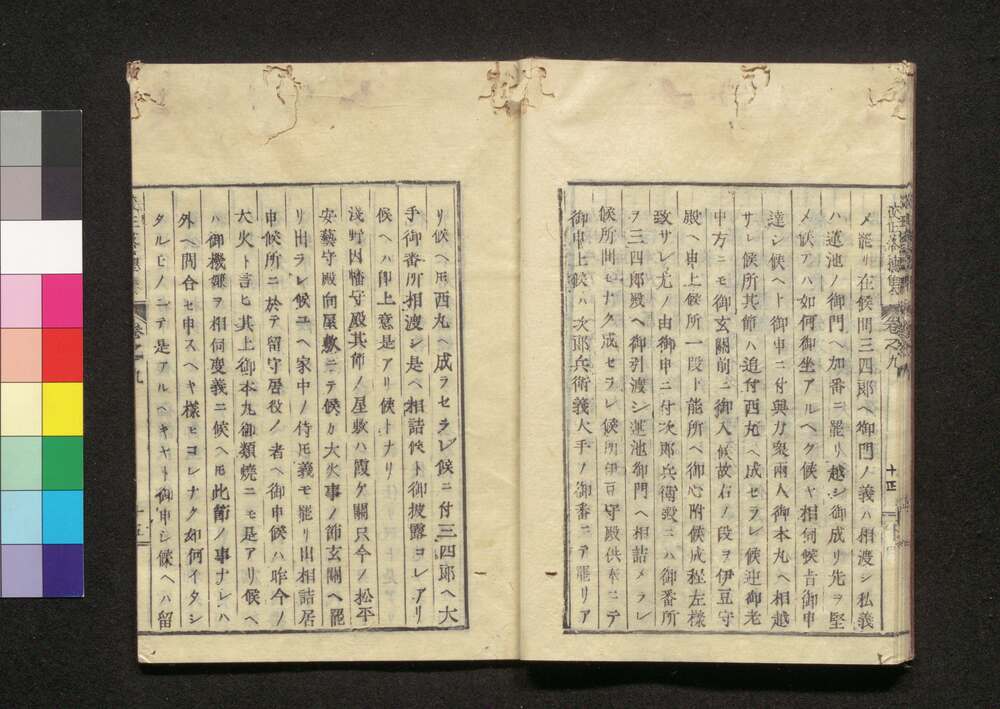 メ罷リ在候間三四郎ヘ御門ノ義ハ相渡シ私義
ハ蓮池ノ御門ヘ加番ニ罷リ越シ御成リ先ヲ堅
メ候アハ如何御坐アルヘク候ヤ相伺候旨御申
達シ候ヘト御申ニ付與力衆兩人御本丸ヘ相越
サレ候所其節ハ追付西丸ヘ成セラレ候迚御老
中方ニモ御玄關前ニ御入候故右ノ段ヲ伊豆守
殿ヘ申上候所一段ト能所ヘ御心附候成程左樣
致サレ尤ノ由御申ニ付次郎兵衛殿ニハ御番所
ヲ三四郎殿ヘ御引渡シ蓮池御門ヘ相詰メラレ
候所間モナク成セラレ候所伊豆守殿供奉ニテ
御申上候ハ次郎兵衛義大手ノ御番ニテ罷リア
卷之九
十四
リ候ヘ𪜈西丸ヘ成ラセラレ候ニ付三四郎ヘ大
手御番所相渡シ是ヘ相詰候ト御披露コレアリ
候ヘハ御上意是アリ候トナリ
淺野因幡守殿其節ノ屋敷ハ霞ケ關只今ノ松平
安藝守殿向屋敷ニテ候カ大火事ノ節玄關ヘ罷
リ出ラレ候ユヘ家中ノ侍𪜈義モ罷リ出相詰居
申候所ニ於テ留守居役ノ者ヘ御申候ハ昨今ノ
大火ト言ヒ其上御本丸御類燒ニモ是アリ候ヘ
ハ御機嫌ヲ相伺度義ニ候ヘ𪜈此節ノ事ナレハ
外ヘ問合セ申スヘキ樣モコレナク如何イタシ
タルモノニテ是アルヘキヤト御申シ候ヘハ留